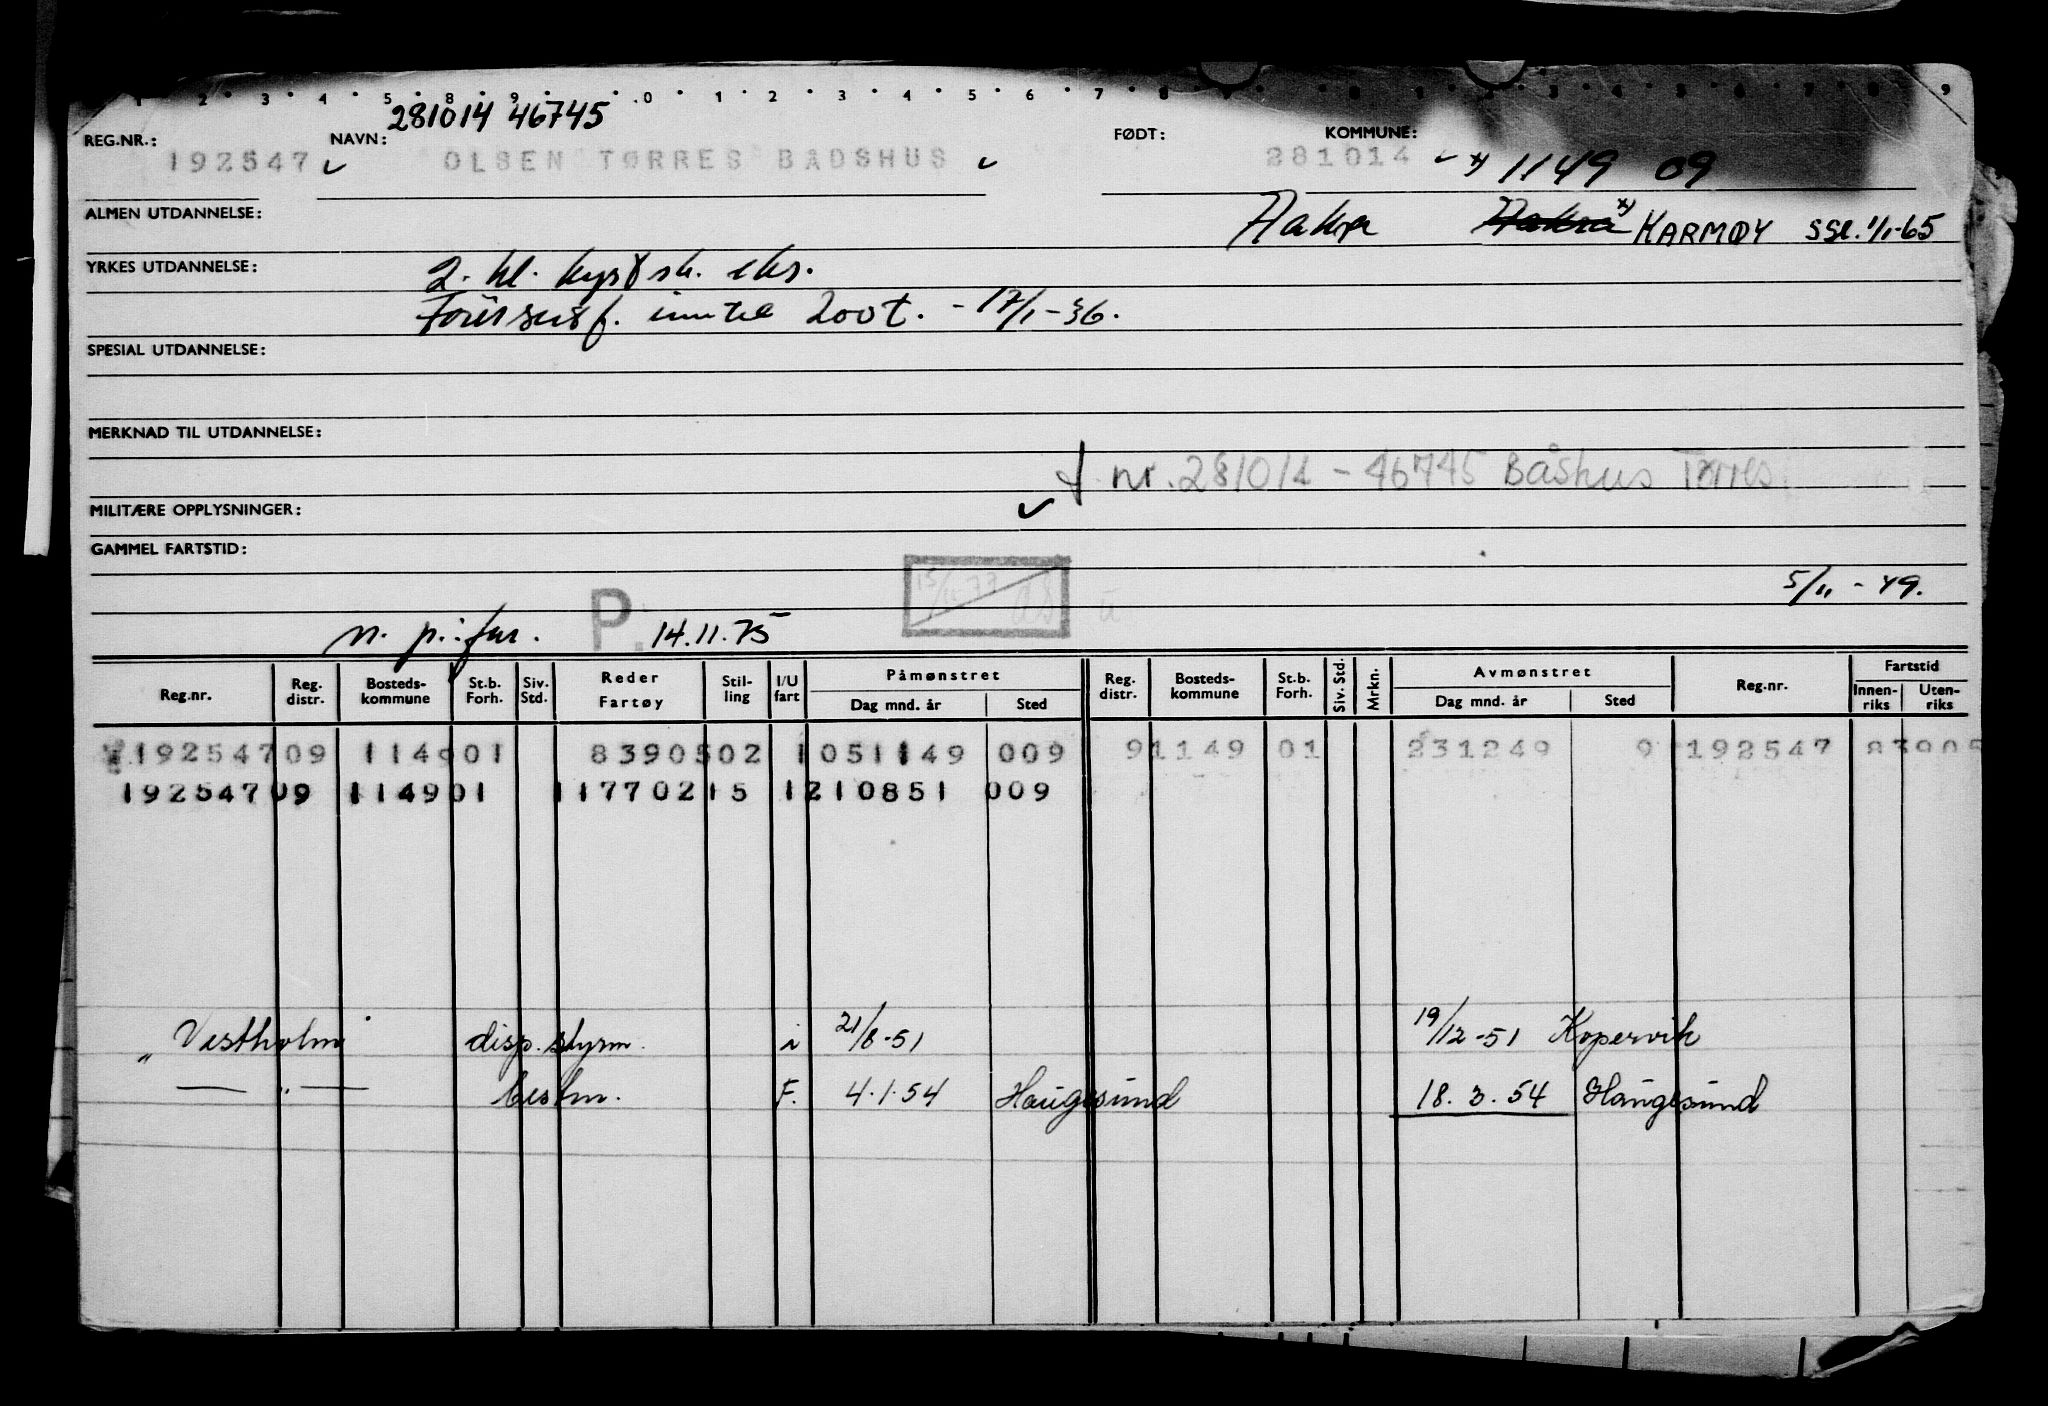 1 2 3 4 5 8 9 0 1 2 3 4 5 6 7 8 2 3 4 5 6 7 8 9
281014 46745
REG.NR.: 192547 NAVN: OLSEN TØRRES BÅDSHUS FØDT: 281014 KOMMUNE: x) 1149 09
ALMEN UTDANNELSE: Aakra Aakra x) KARMØY SSl. 1/1-65
YRKES UTDANNELSE: 2. kl. kystsk. eks.
inntil 200t. - 17/1-36.
SPESIAL UTDANNELSE:
MERKNAD TIL UTDANNELSE:
f. nr. 281014 - 46745 Båshus Tørres
MILITÆRE OPPLYSNINGER:
GAMMEL FARTSTID:
15/11 77
5/11 - 49.
n. p. P. 14.11.75
Reg.nr. Reg. distr. Bosteds- kommune St.b. Forh. Siv. Std. Reder Fartøy Stil- ling I/U fart Påmønstret Dag mnd. år Sted Reg. distr. Bosteds- kommune St.b. Forh. Siv. Std. Mrkn. Avmønstret Dag mnd. år Sted Reg.nr. Fartstid Innen- riks Uten- riks
192547 09 1149 01 83905 02 1 051149 009 9 1149 01 231249 9 192547 83905
192547 09 1149 01 117702 15 1 210851 009
"Vestholm" disp. styrm. i 21/8-51 19/12-51 Kopervik
— " — bestm. F. 4.1.54 Haugesund 18.3.54 Haugesund